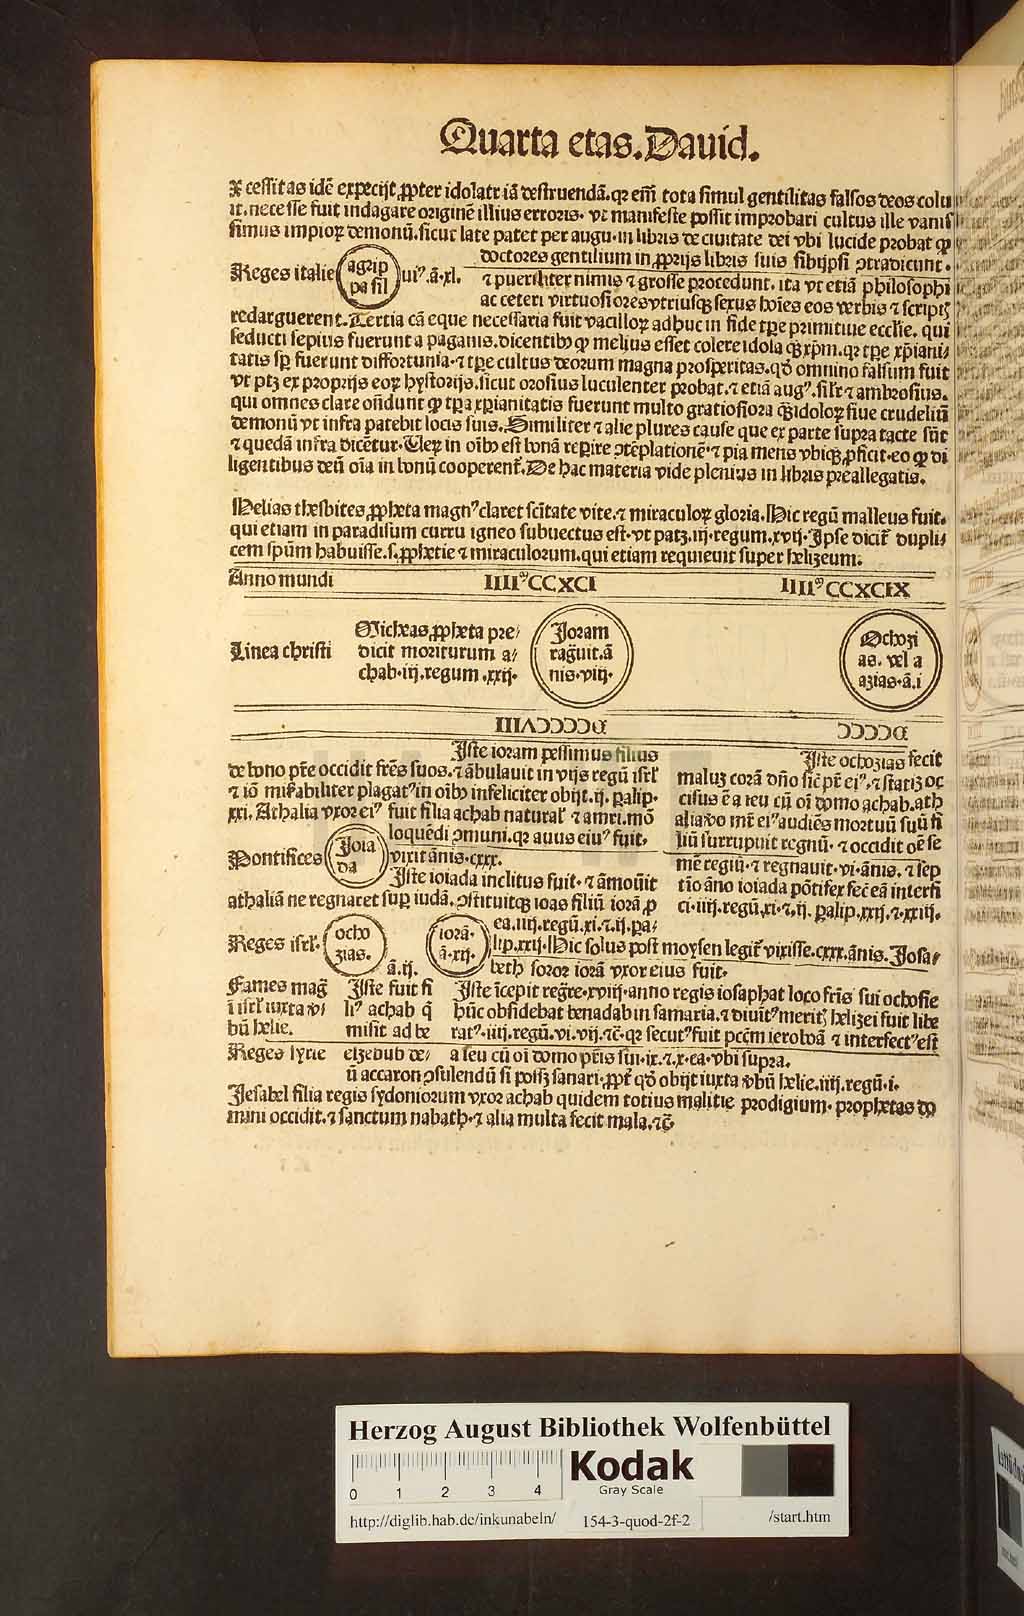 Quarta etas. Dauid.
cessitas idē expecijt ꝓpter idolatriā destruendā. qꝛ em̄ tota simul gentilitas falsos deos colu
it. necesse fuit indagare originē illius erroris. vt manifeste possit improbari cultus ille vanis
simus impioꝝ demonū. sicut late patet per augu. in libris de ciuitate dei vbi lucide probat ꝙ
doctores gentilium in ꝓprijs libris suis sibijpsi ↄtradicunt.
Reges italie
agrip
pa sil
uiꝰ .ā. xl.
⁊ pueriliter nimis ⁊ grosse procedunt. ita vt etiā philosophi
ac ceteri virtuosiores vtriusqꝫ sexus hoīes eos verbis ⁊ scriptꝭ
redarguerent. Tertia cā eque necessaria fuit vacilloꝝ adhuc in fide tꝑe primitiue ecclīe. qui
seducti sepius fuerunt a paganis. dicentibꝰ ꝙ melius esset colere idola qꝫ xp̄m. qꝛ tꝑe xp̄iani
tatis sꝑ fuerunt diffortunia. ⁊ tꝑe cultus deorum magna prosperitas. qd̄ omnino falsum fuit
vt ptꝫ ex proprijs eoꝝ hystorijs. sicut orosius luculenter probat. ⁊ etiā augꝰ. silr̄ ⁊ ambrosius.
qui omnes clare on̄dunt ꝙ tꝑa xp̄ianitatis fuerunt multo gratiosiora qꝫ idoloꝝ siue crudeliū
demonū vt infra patebit locis suis. Similiter ⁊ alie plures cause que ex parte supra tacte sūt
⁊ quedā infra dicētur. Ueꝝ in oībꝰ est bonā reꝑire ↄtēplationē. ⁊ pia mens vbiqꝫ ꝓficit. eo ꝙ di
ligentibus deū oīa in bonū cooperentr̄. De hac materia vide plenius in libris preallegatis.
Helias thesbites ꝓpheta magnꝰ claret scītate vite. ⁊ miraculoꝝ gloria. Hic regū malleus fuit.
qui etiam in paradisum curru igneo subuectus est. vt patꝫ. iij. regum. xvij. Ipse dicitr̄ dupli
cem sp̄um habuisse. s. ꝓphetie ⁊ miraculorum. qui etiam requieuit super helizeum.
Anno mundi
IIIIᵐCCXCI
IIIIᵐCCXCIX
Linea christi
Micheas ꝓpheta pre
dicit moriturum a
chab. iij. regum .xxij.
Joram
ragūit. ā
nis. viij.
Ochozi
as. vel a
azias. ā. i
Iste ioram pessimus filius
de bono pr̄e occidit fr̄es suos. ⁊ ābulauit in vijs regū isrl̄
⁊ iō mis̄abiliter plagatꝰ in oībꝰ infeliciter obijt. ij. ꝑalip.
xxi. Athalia vxor eiꝰ fuit filia achab naturał ⁊ amri. mō
loquēdi ↄmuni. qꝛ auus eiuꝰ fuit.
Iste ochozias fecit
maluꝫ corā dn̄o sic̄ pr̄ eiꝰ. ⁊ statiꝫ oc
cisus ē a ieu cū oī domo achab. ath
alia vo mr̄ eiꝰ audiēs mortuū suū fi
liū surripuit regnū. ⁊ occidit oē se
mē regiū. ⁊ regnauit. vi. ānis. ⁊ sep
tīo āno ioiada pōtifex fec̄ eā interfi
ci. iiij. regū. xi. ⁊. ij. ꝑalip. xxij. ⁊. xxiij.
Pontifices
Joia
da
vixit ānis. cxxx.
Iste ioiada inclitus fuit. ⁊ āmouit
athaliā ne regnaret suꝑ iudā. ↄstituitqꝫ ioas filiū iorā ꝓ
ea. iiij. regū. xi. ⁊. ij. ꝑa
lip. xxij. Hic solus post moysen legitr̄ vixisse. cxxx. ānis. Josa
beth soror iorā vxor eius fuit.
Reges isrl̄.
ocho
zias.
ā. ij.
iorā.
ā. xij.
Fames maḡ
ī isrl̄ iuxta v̄
bū helie.
Iste fuit fi
liꝰ achab q̄
misit ad be
elzebub de
ū accaron ↄsulendū si possꝫ sanari. ꝓpt̄ qd̄ obijt iuxta v̄bū helie. iiij. regū. i.
Iste īcepit regr̄e. xviij. anno regis iosaphat loco fr̄is sui ochosie
hūc obsidebat benadab in samaria. ⁊ diuītꝰ meritꝭ helizei fuit libe
ratꝰ. iiij. regū. vi. vij. ⁊c̄. qꝛ secutꝰ fuit pcc̄m ieroboā ⁊ interfectꝰ est
a ieu cū oī domo pr̄is sui. ix. ⁊. x. ea. vbi supra.
Reges syrie
Jesabel filia regis sydoniorum vxor achab quidem totius malitie prodigium. prophetas do
mini occidit. ⁊ sanctum nabath. ⁊ alia multa fecit mala. ⁊c̄
Herzog August Bibliothek Wolfenbüttel
0 1 2 3 4
Kodak
Gray Scale
http://diglib.hab.de/inkunabeln/ 154-3-quod-2f-2 /start.htm